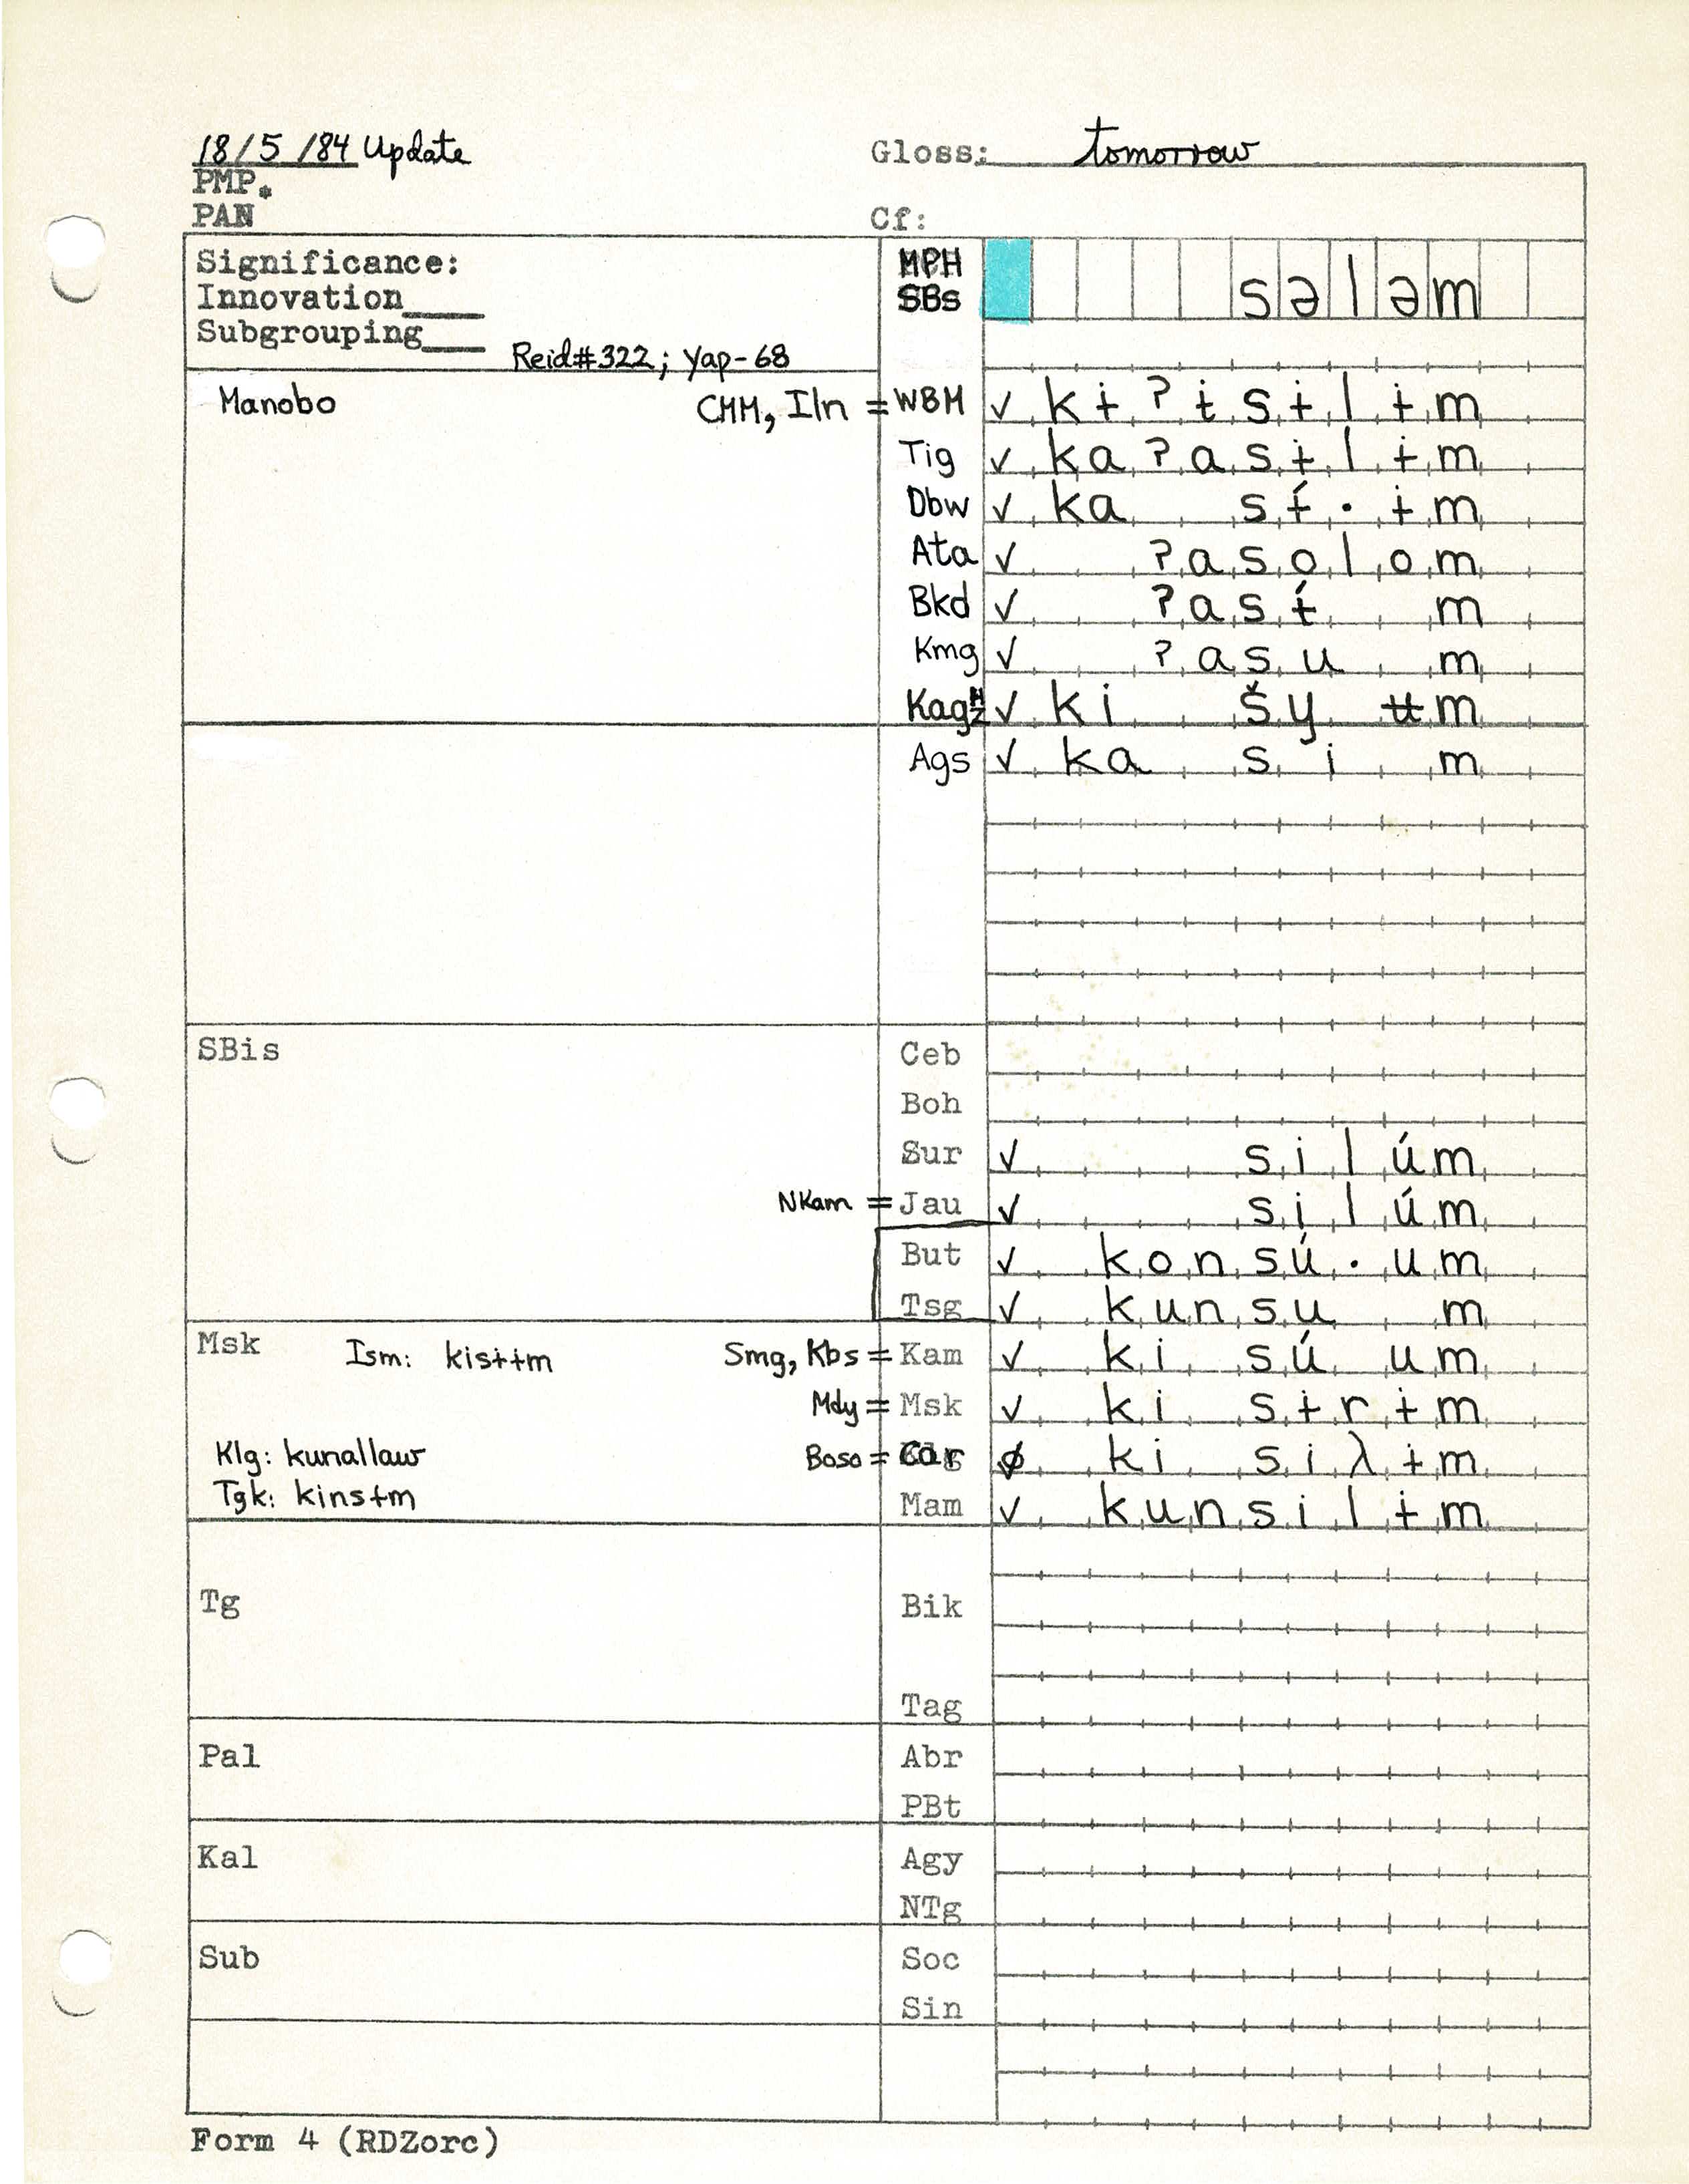 18/5/84 Update Gloss: tomorrow
PMP.
PAN Cf:
Significance: MPH səlǝm
Innovation___ SBs
Subgrouping___
Reid#322; Yap-68
Manobo CMM, Iln = WBM ✓ kɨʔɨsɨlɨm
Tig ✓ kaʔasɨlɨm
Dbw ✓ ka sɨ́·ɨm
Ata ✓ ʔasolom
Bkd ✓ ʔasɨ́ m
Kmg ✓ ʔasu m
Kag ✓ ki šy ʉm
Ags ✓ ka si m
SBis Ceb
Boh
Sur ✓ silúm
NKam = Jau ✓ silúm
But ✓ konsú·um
Tsg ✓ kunsu m
Msk Ism: kisɨɨm Smg, Kbs = Kam ✓ ki sú um
Mdy = Msk ✓ ki sɨrɨm
Klg: kunallaw Boso = ø ki siλɨm
Tgk: kinsɨm Mam ✓ kunsilɨm
Tg Bik
Tag
Pal Abr
PBt
Kal Agy
NTg
Sub Soc
Sin
Form 4 (RDZorc)